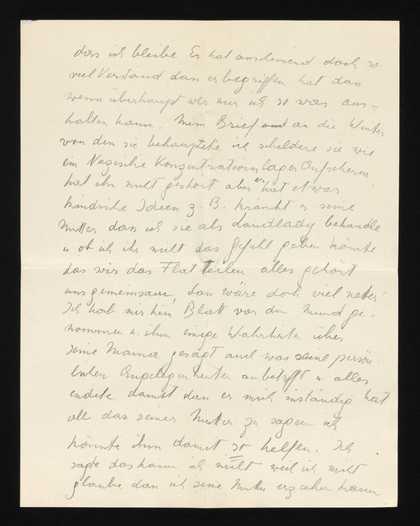 dass ich bleibe Es hat anscheinend doch so
viel Verstand dan er begriffen hat dan
wenn überhaupt wer nur ich so was aus-
halten kann. Mein Brief an die Winter
von dem sie behauptete sie schildere sie wie
ein Nazische Konzentrationslager Aufseherin
hat ihn nicht gestört aber er hat etwas
kindische Ideen z B. kränkt es seine
Mutter dan ich sie als Landlady behandle
u ob ich ihr nicht das Gefühl geben könnte
das wir das Flat teilen alles gehört
uns gemeinsam, dan wäre doch viel netter
Ich hab mir kein Blatt vor den Mund ge-
nommen u ihm einige Wahrheiten über
seine Mama gesagt auch was seine persön
lichen Angelegenheiten anbetrifft u alles
endete damit dan er mich inständig bat
all das seiner Mutter zu sagen ich
könnte ihm damit so helfen. Ich
sagte das kann ich nicht weil ich nicht
glaube dan ich seine Mutter erziehen kann